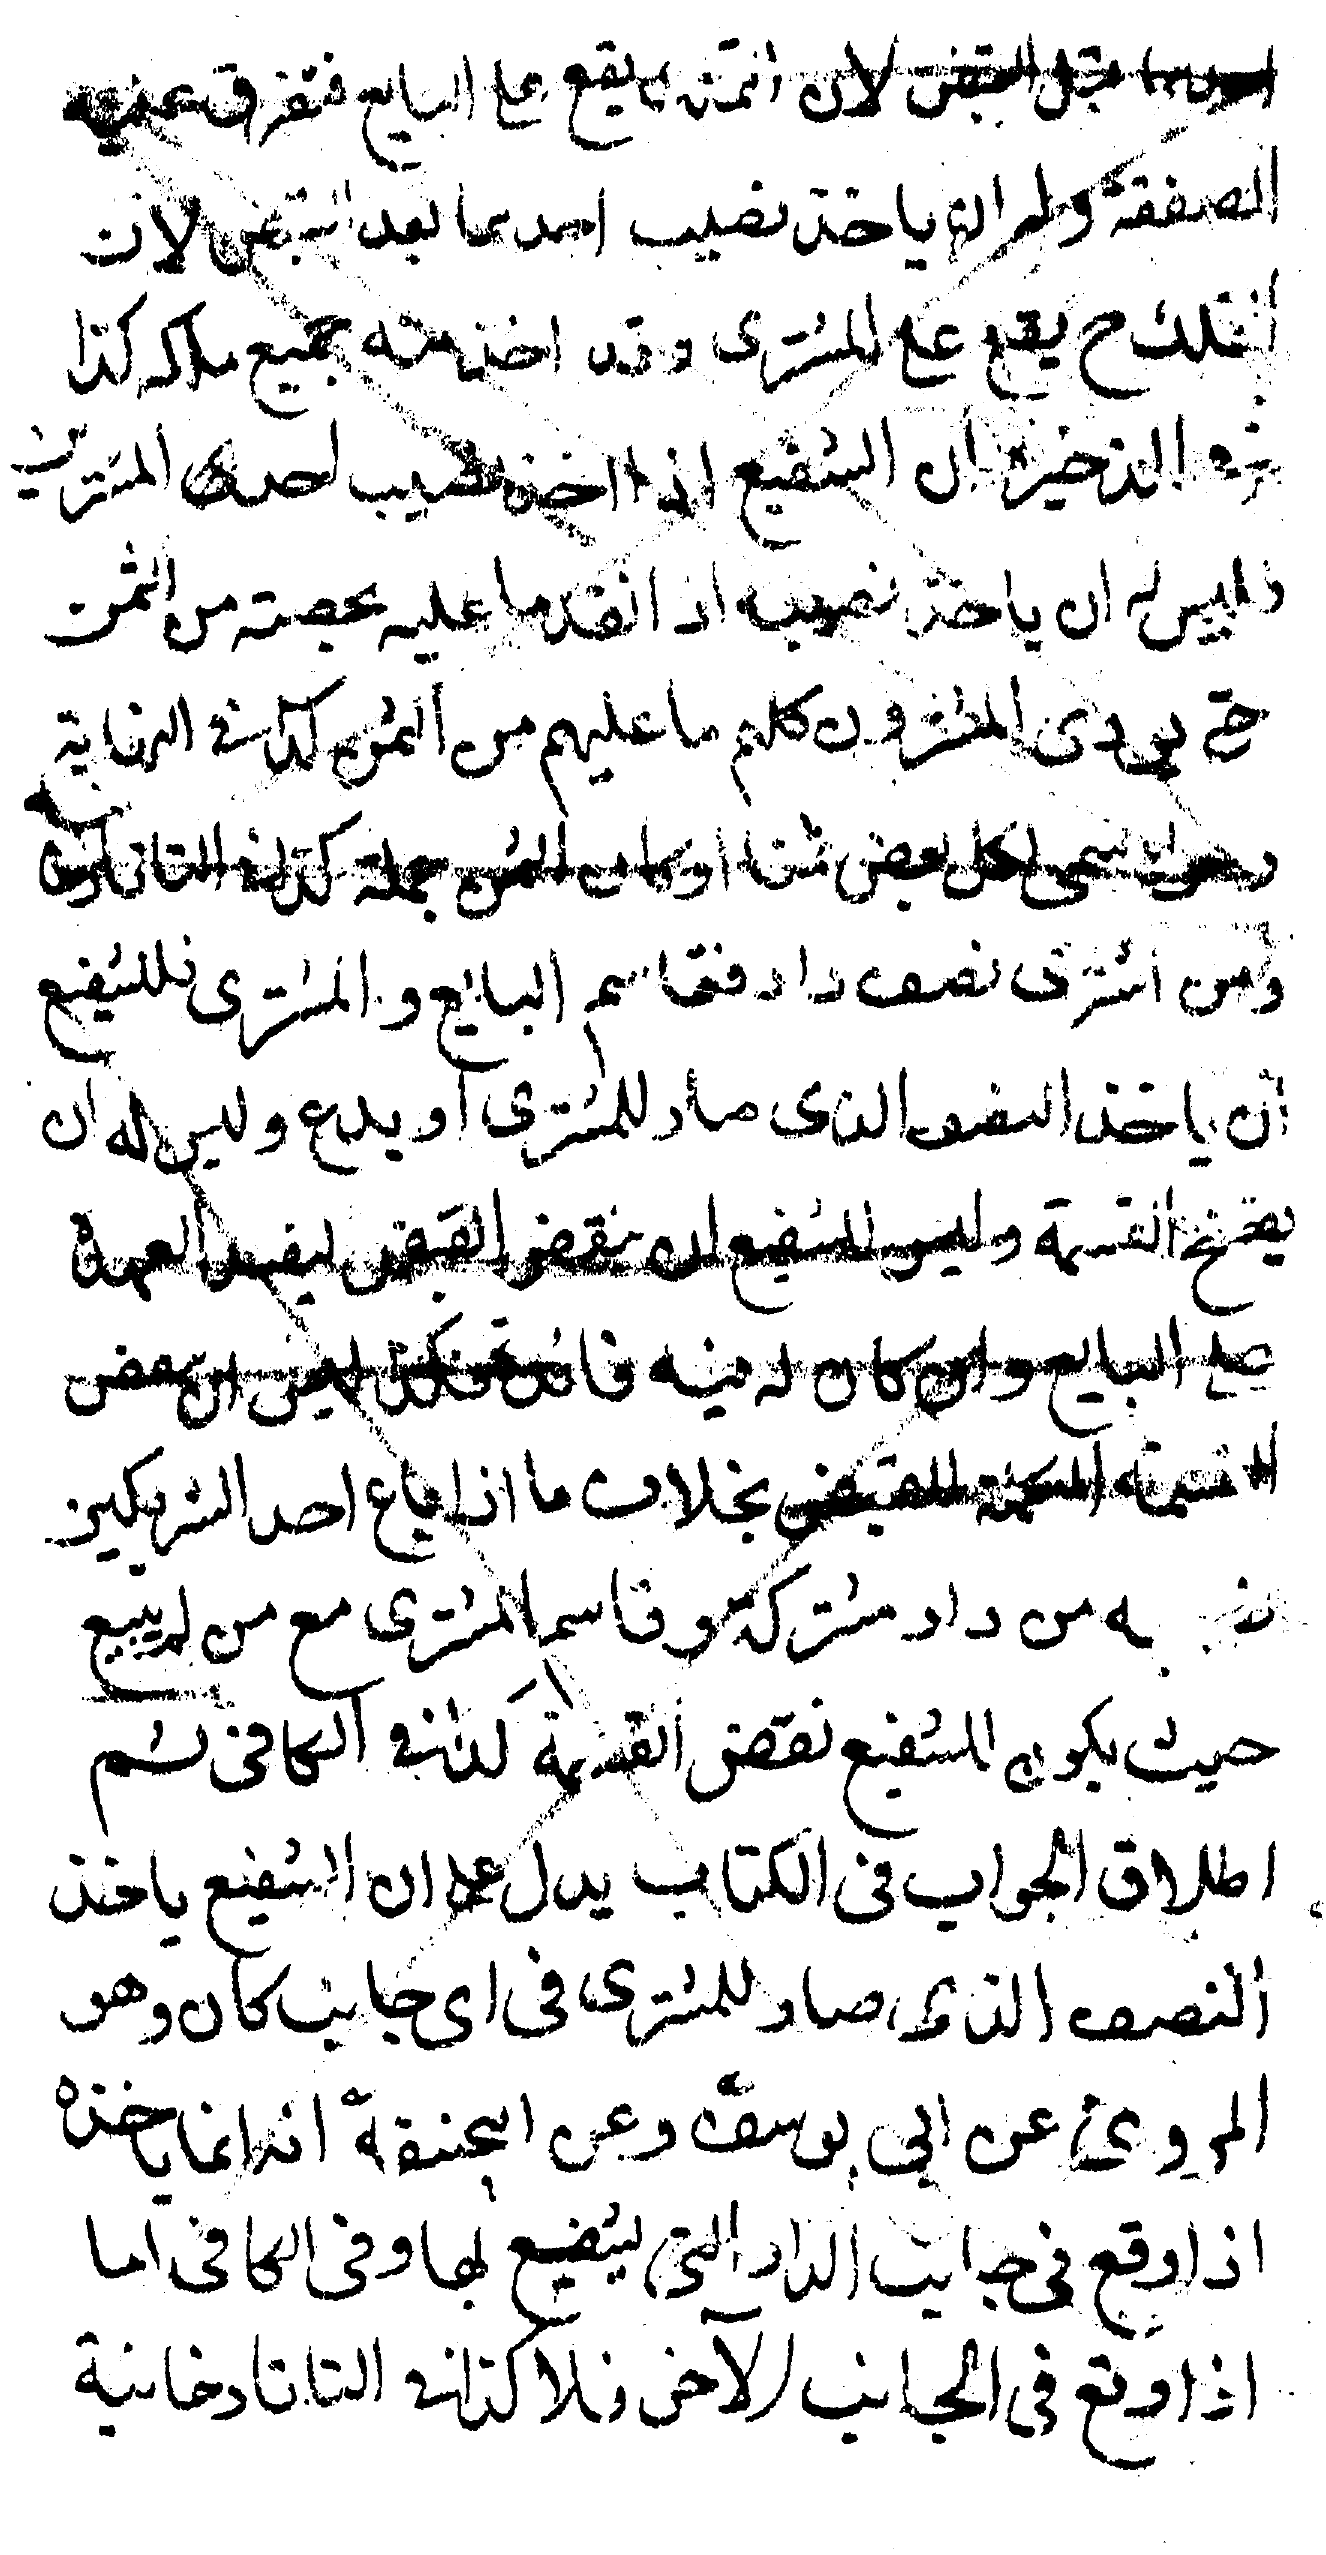 احدهما قبل القبض لان التملك يقع على البايع فتفرق عليه
الصفقة وله ان ياخذ نصيب احدهما بعد القبض لان
التملك ح يقع على المشترى وقد اخذ منه جميع ملكه كذا
فى الذخيرة ان الشفيع اذا اخذ نصيب احد المشترين
فليس له ان ياخذ نصيبه اذا نقد ما عليه بحصته من الثمن
حتى يودى المشترون كلهم ما عليهم من الثمن كذا فى النهاية
وسمى لكل بعض ثمنا او كان الثمن جملة كذا فى التاتارخانية
ومن اشترى نصف دار فقاسم البايع والمشترى فللشفيع
ان ياخذ النصف الذى صار للمشترى او يدع وليس له ان
يفسخ القسمة وليس للشفيع ان ينقض القبض ليفيد العهدة
على البايع وان كان له فيه فائدة فكذا ليس ان ينقض
القسمة المكملة للقبض بخلاف ما اذا باع احد الشريكين
نصيبه من دار مشتركة وقاسم المشترى مع من لم يبع
حيث يكون للشفيع نقض القسمة كذا فى الكافى ثم
اطلاق الجواب فى الكتاب يدل على ان الشفيع ياخذ
النصف الذى صار للمشترى فى اى جانب كان وهو
المروى عن ابى يوسف وعن ابيحنيفة انه انما ياخذه
اذا وقع فى جانب الدار التى يشفع بها وفى الكافى اما
اذا وقع فى الجانب الآخر فلا كذا فى التاتارخانية